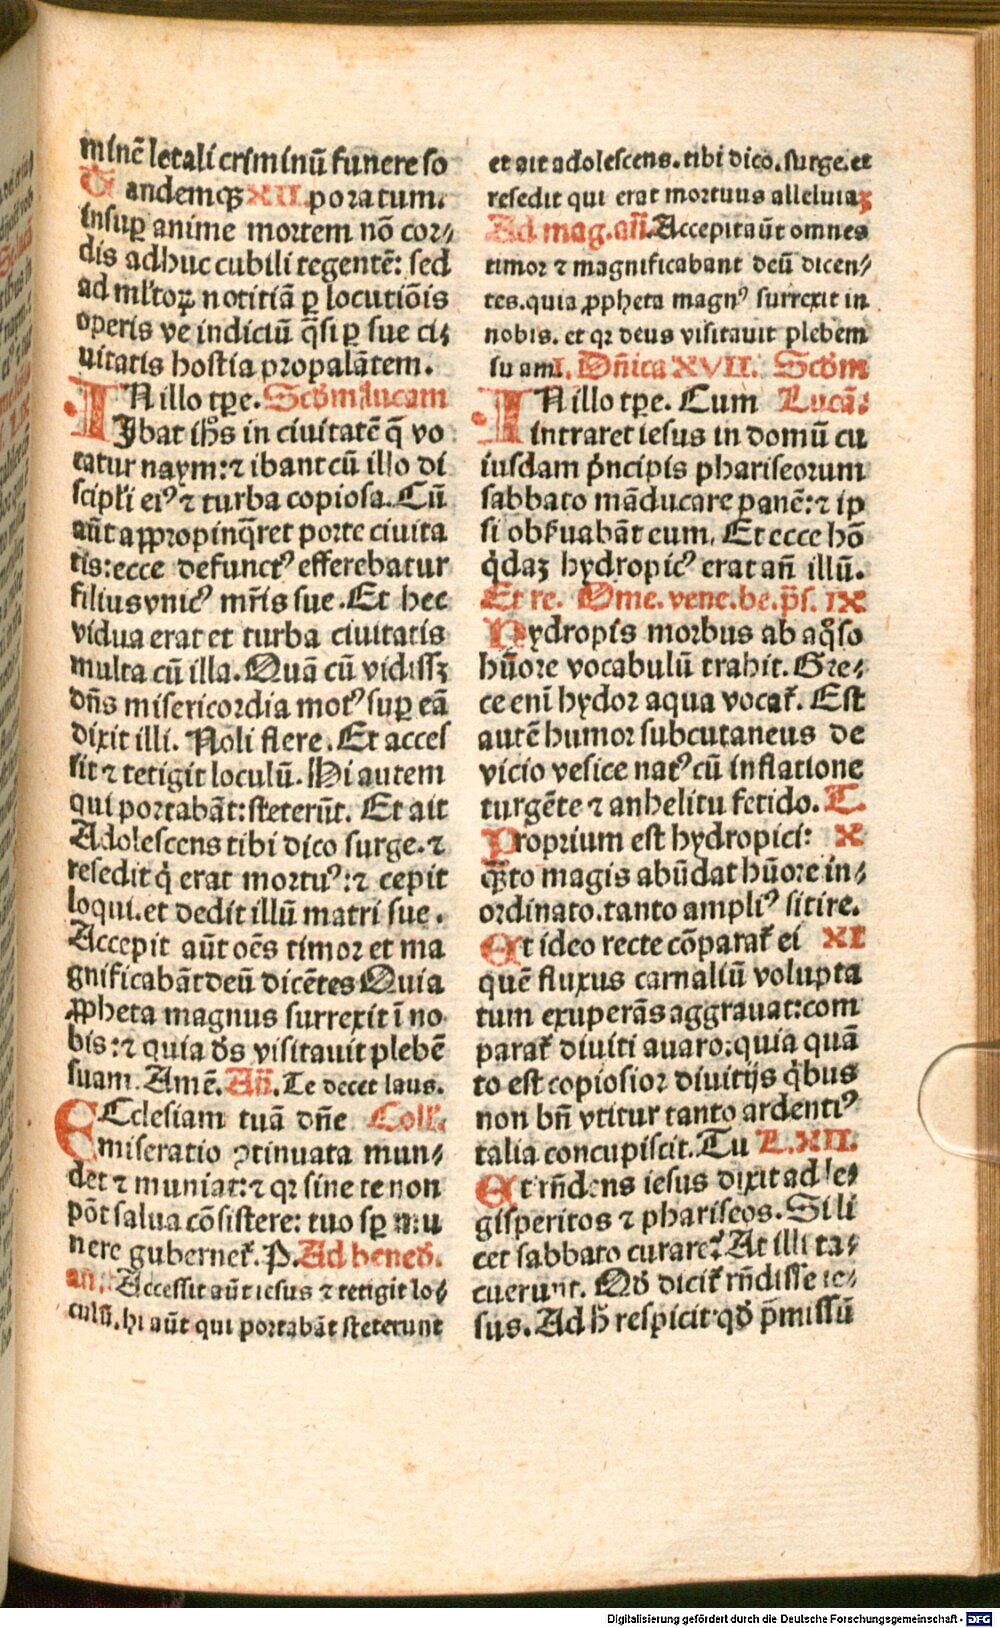 minē letali criminū funere so
Tandemqꝫ XII. poratum.
insuꝑ anime mortem nō cor⸗
dis adhuc cubili tegentē: sed
ad ml'toꝝ notitiā ꝑ locutiōis
operis ve indiciū q̄si ꝑ sue ci⸗
uitatis hostia propalātem.
IN illo tꝑe. Scd'm lucam
Ibat ihs̄ in ciuitatē q̄ vo
catur naym: ⁊ ibant cū illo di
scipl'i eiꝰ ⁊ turba copiosa. Cū
aūt appropinq̄ret porte ciuita
tis: ecce defunctꝰ efferebatur
filius vnicꝰ mr̄is sue. Et hec
vidua erat et turba ciuitatis
multa cū illa. Quā cū vidissꝫ
dn̄s misericordia motꝰ suꝑ eā
dixit illi. Noli flere. Et acces
sit ⁊ tetigit loculū. Hi autem
qui portabāt: steterūt. Et ait
Adolescens tibi dico surge. ⁊
resedit q̇ erat mortuꝰ: ⁊ cepit
loqui. et dedit illū matri sue.
Accepit aūt oēs timor et ma
gnificabāt deū dicētes Quia
ꝓpheta magnus surrexit ī no
bis: ⁊ quia ds̄ visitauit plebē
suam. Amē. Añ. Te decet laus.
ECclesiam tuā dn̄e Coll'.
miseratio ꝯtinuata mun⸗
det ⁊ muniat: ⁊ qꝛ sine te non
pōt salua cōsistere: tuo sꝑ mu
nere gubernet᷑. P. Ad bened'.
añ. Accessit aūt iesus ⁊ tetigit lo⸗
culū. hi aūt qui portabāt steterunt
et ait adolescens. tibi dico. surge. et
resedit qui erat mortuus alleluiaꝫ
Ad mag. añ. Accepit aūt omnes
timor ⁊ magnificabant deū dicen⸗
tes. quia ꝓpheta magnꝰ surrexit in
nobis. et qꝛ deus visitauit plebem
suam. Dn̄ica XVII. Scd'm
IN illo tꝑe. Cum Lucā.
intraret iesus in domū cu
iusdam pͥncipis phariseorum
sabbato māducare panē: ⁊ ip
si obẜuabāt eum. Et ecce hō
q̇daꝫ hydropicꝰ erat añ illū.
Et re. Ome. vene. be. pſ̄. IX
Hydropis morbus ab aq̄so
hūore vocabulū trahit. Gre⸗
ce enī hydor aqua vocat᷑. Est
autē humor subcutaneus de
vicio vesice natꝰ cū inflatione
turgēte ⁊ anhelitu fetido. L.
Proprium est hydropici: X
q̄ꝫto magis abūdat hūore in⸗
ordinato. tanto ampliꝰ sitire.
Et ideo recte cōparat᷑ ei XI
quē fluxus carnaliū volupta
tum exuperās aggrauat: com
parat᷑ diuiti auaro: quia quā
to est copiosior diuitijs q̇bus
non bn̄ vtitur tanto ardentiꝰ
talia concupiscit. Tu L. XII.
Et rn̄dens iesus dixit ad le⸗
gisperitos ⁊ phariseos. Si li
cet sabbato curare? At illi ta⸗
cuerunt. Qd' dicit᷑ rn̄disse ie⸗
sus. Ad h̄ respicit: qd' p̄missū
Digitalisierung gefördert durch die Deutsche Forschungsgemeinschaft - DFG